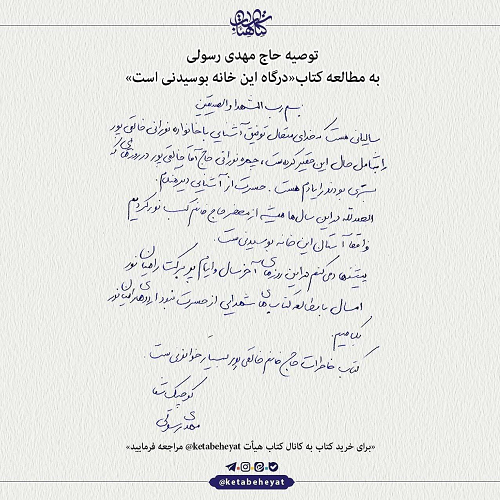 توصیه حاج مهدی رسولی
به مطالعه کتاب «درگاه این خانه بوسیدنی است»
بسم رب الشهداء والصدیقین
سالیانی هست که خدای متعال توفیق آشنایی با خانواده نورانی خالقی پور
را شامل حال این حقیر کرده است، چهره نورانی حاج آقا خالقی پور در روزهایی که
بستری بودند را یادم هست. حسرت از آشنایی دیرهنگام.
الحمدلله در این سال‌ها همیشه از محضر حاج خانم کسب نور کردیم
واقعا آستان این خانه بوسیدنی ست.
پیشنهاد می‌کنم در این روزهای آخر سال و ایام پر برکت راهیان نور
امسال با مطالعه کتاب‌های شهدایی از حسرت نبود اردوهای راهیان نور
بکاهیم.
کتاب خاطرات حاج خانم خالقی پور بسیار خواندنی ست
کوچیک شما
مهدی رسولی
«برای خرید کتاب به کانال کتاب هیأت @ketabeheyat مراجعه فرمایید»
@ketabeheyat